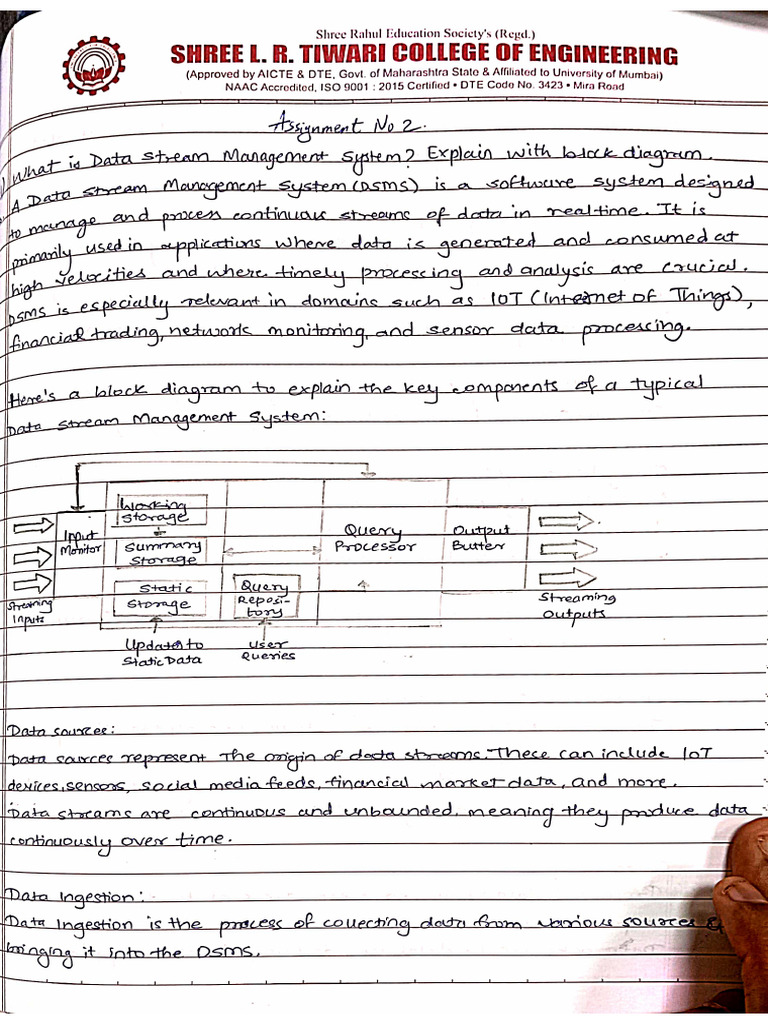 Shree Rahul Education Society's (Regd.)
SHREE L. R. TIWARI COLLEGE OF ENGINEERING
(Approved by AICTE & DTE, Govt. of Maharashtra State & Affiliated to University of Mumbai)
NAAC Accredited, ISO 9001 : 2015 Certified • DTE Code No. 3423 • Mira Road
Assignment No 2.
What is Data Stream Management System? Explain with block diagram.
A Data Stream Management System (DSMS) is a software system designed
to manage and process continuous streams of data in real-time. It is
primarily used in applications where data is generated and consumed at
high velocities and where timely processing and analysis are crucial.
DSMS is especially relevant in domains such as IOT (Internet of Things),
financial trading, network monitoring, and sensor data processing.
Here's a block diagram to explain the key components of a typical
Data Stream Management System:
Working
Storage
Input
Monitor
Summary
Storage
Static
Storage
Query
Reposi-
tory
Query
Processor
Output
Butter
Streaming
Inputs
Streaming
Outputs
Updates to
Static Data
User
Queries
Data sources:
Data sources represent the origin of data streams. These can include IoT
devices, sensors, social media feeds, financial market data, and more.
Data streams are continuous and unbounded, meaning they produce data
continuously over time.
Data Ingestion:
Data Ingestion is the process of collecting data from various sources &
bringing it into the DSMS.